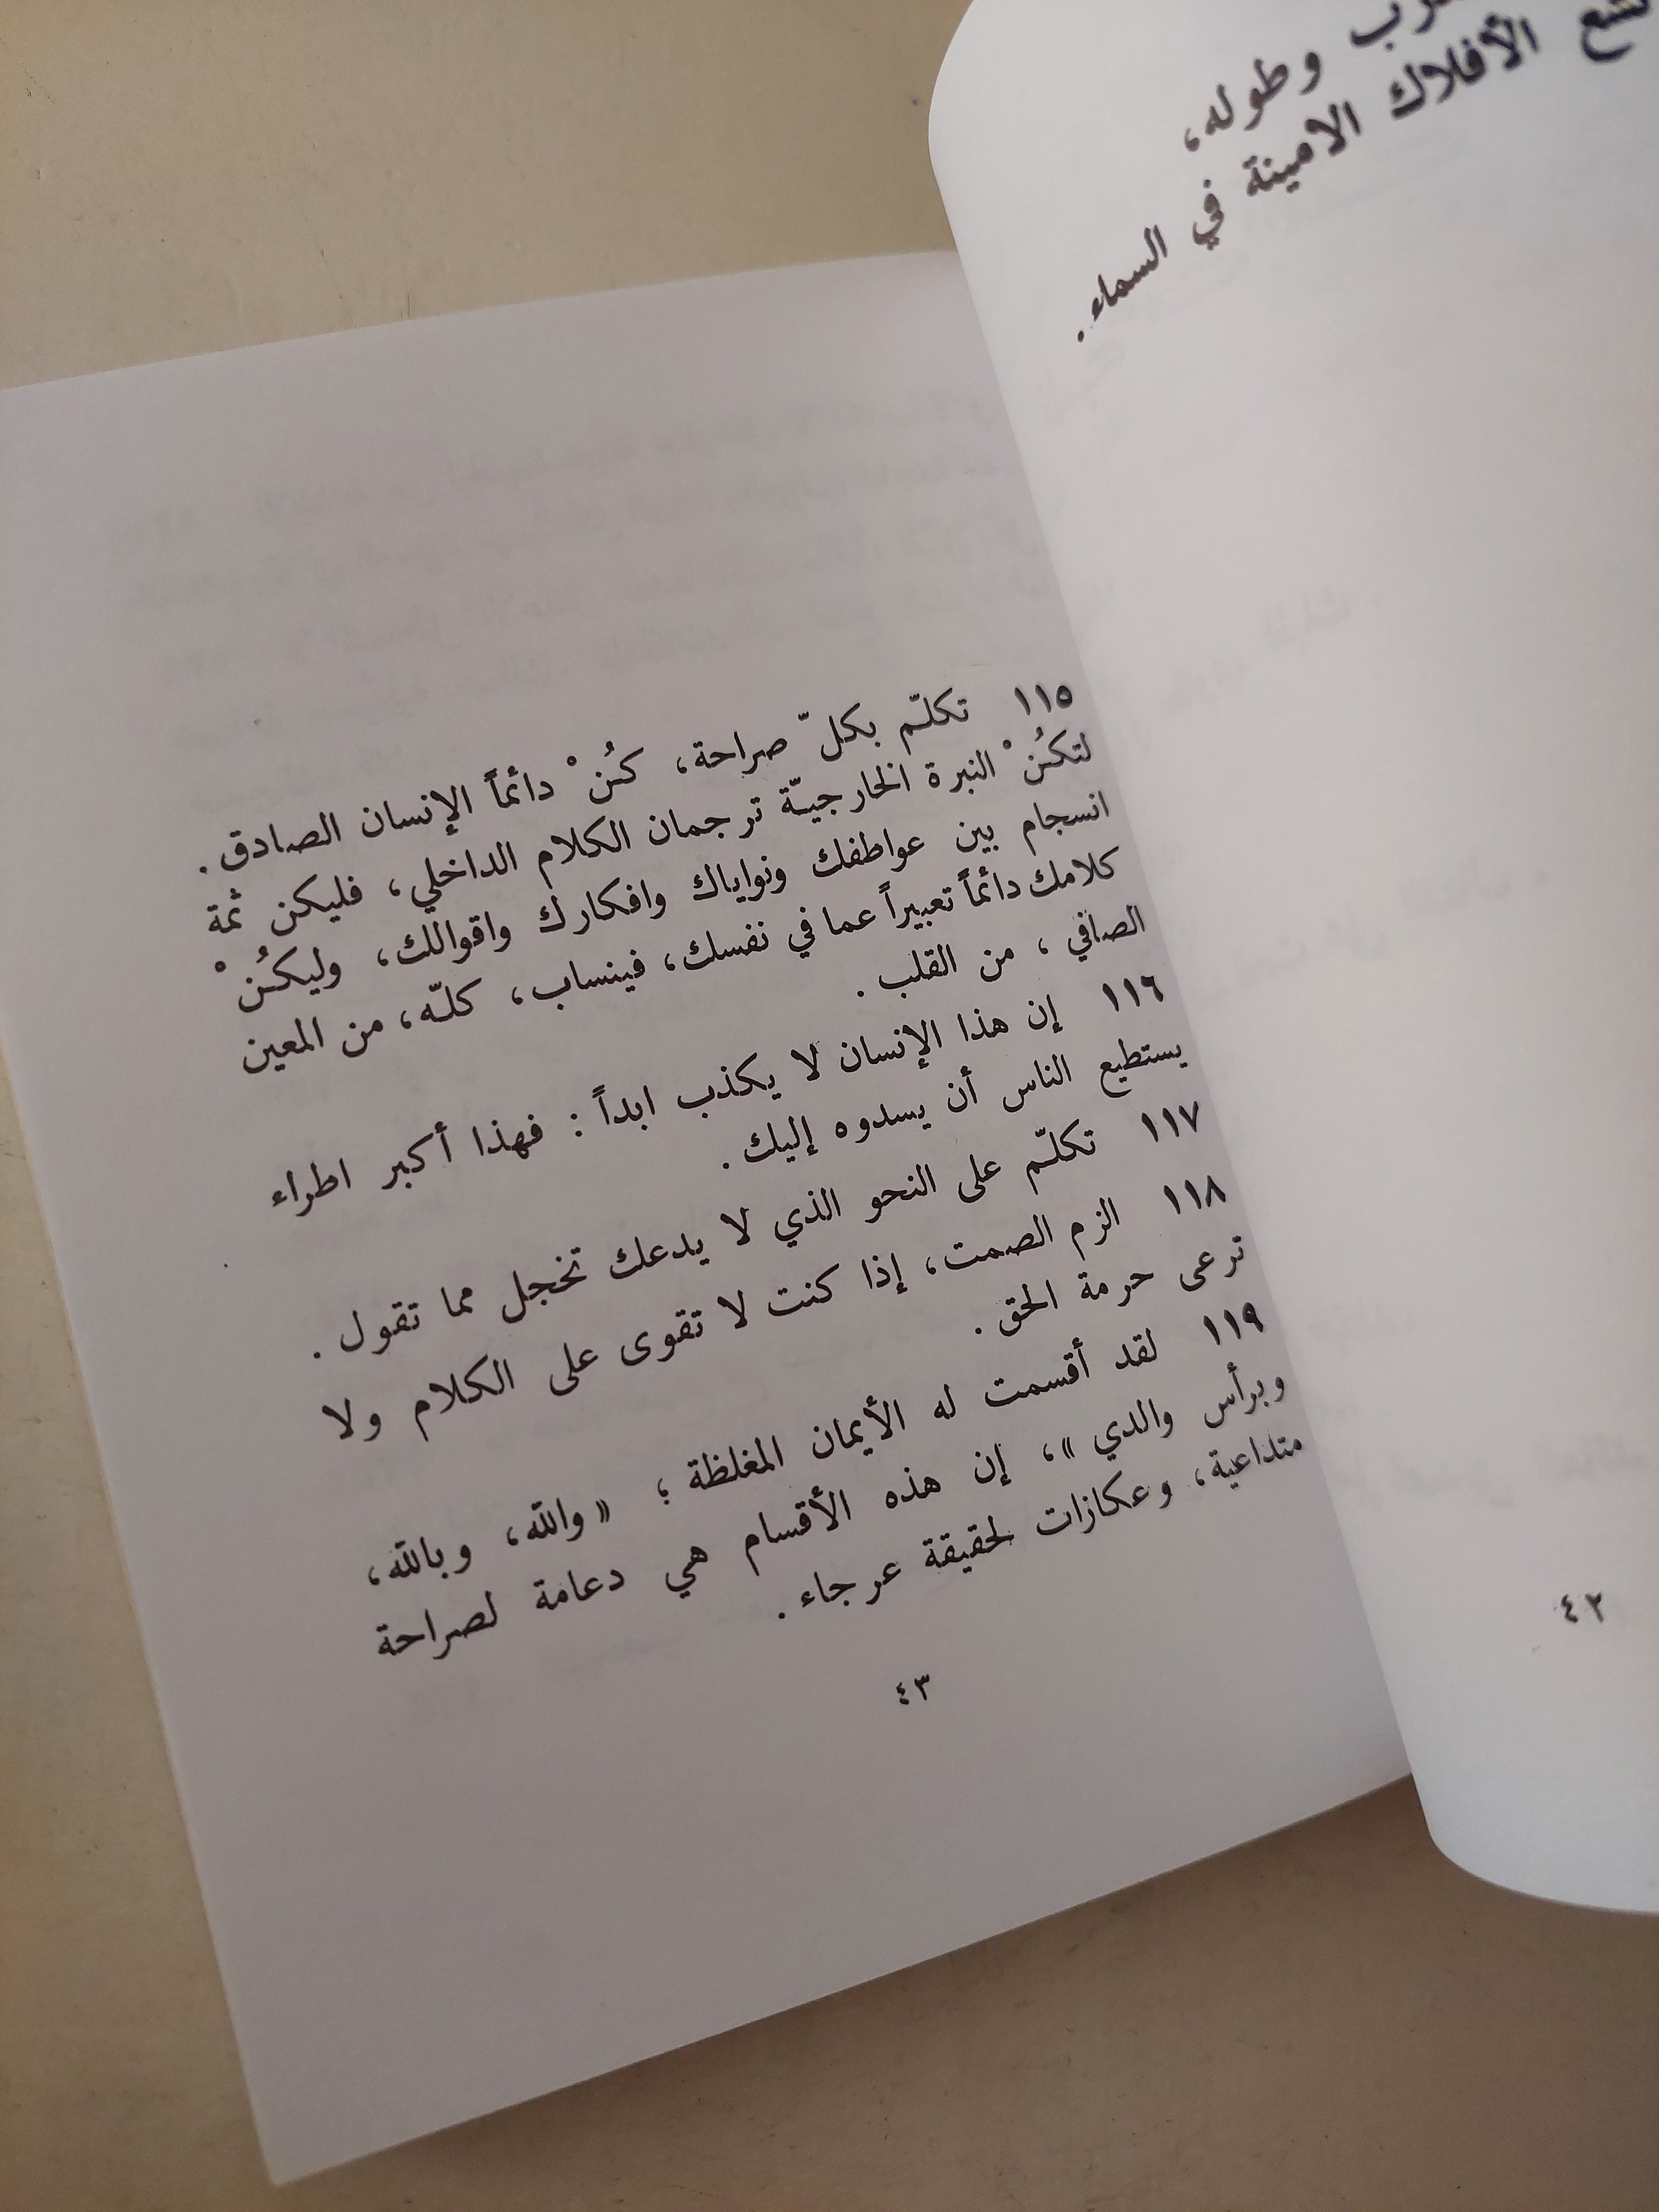 وطوله،
الأفلاك الامينة في السماء.
٤٢
١١٥ تكلّم بكلّ صراحة، كُنْ دائماً الإنسان الصادق.
لتكُنْ النبرة الخارجيّة ترجمان الكلام الداخلي، فليكن ثمة
انسجام بين عواطفك ونواياك وافكارك واقوالك، وليكُنْ
كلامك دائماً تعبيراً عما في نفسك، فينساب، كلّه، من المعين
الصافي، من القلب.
١١٦ إن هذا الإنسان لا يكذب ابداً: فهذا أكبر اطراء
يستطيع الناس أن يسدوه إليك.
١١٧ تكلّم على النحو الذي لا يدعك تخجل مما تقول.
١١٨ الزم الصمت، إذا كنت لا تقوى على الكلام ولا
ترعى حرمة الحق.
١١٩ لقد أقسمت له الأيمان المغلظة؛ «والله، وبالله،
وبرأس والدي»، إن هذه الأقسام هي دعامة لصراحة
متداعية، وعكازات لحقيقة عرجاء.
٤٣